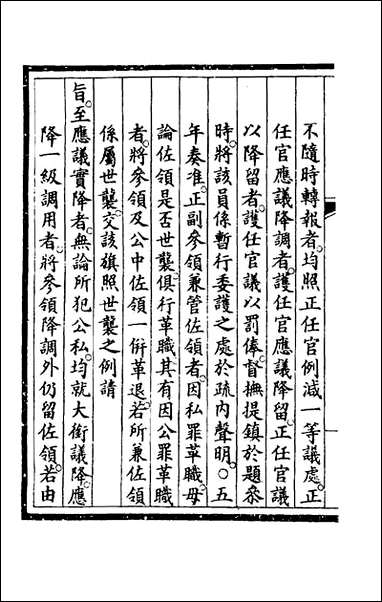 不隨時轉報者。均照正任官例減一等議處。正
任官應議降調者。護任官應議降留。正任官議
以降留者。護任官議以罰俸。督撫提鎮於題參
時。將該員係暫行委護之處於疏內聲明。○五
年奏准。正副參領兼管佐領者。因私罪革職。毋
論佐領是否世襲。俱行革職。其有因公罪革職
者。將參領及公中佐領一倂革退。若所兼佐領
係屬世襲。交該旗照世襲之例請
旨。至應議實降者。無論所犯公私。均就大銜議降。應
降一級調用者。將參領降調外仍留佐領。若由